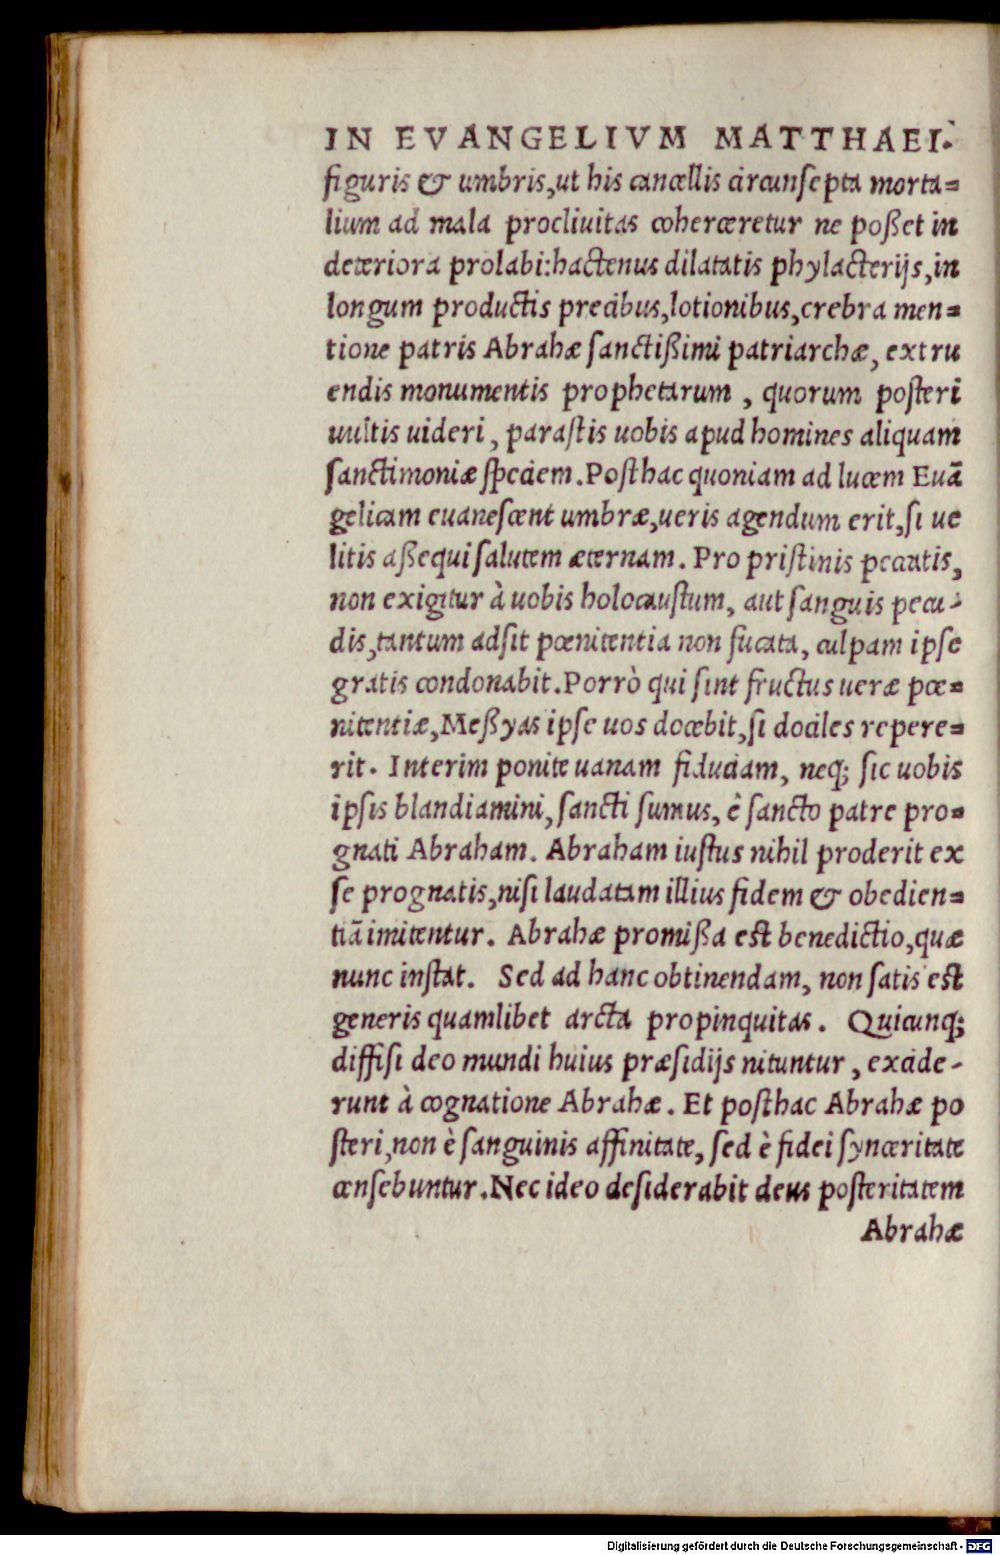 IN EVANGELIVM MATTHAEI.
figuris & umbris,ut his cancellis circunsepta morta=
lium ad mala procliuitas coherceretur ne poßet in
deteriora prolabi:hactenus dilatatis phylacterijs,in
longum productis precibus,lotionibus,crebra men=
tione patris Abrahæ sanctißimi patriarchæ, extru
endis monumentis prophetarum , quorum posteri
uultis uideri, parastis uobis apud homines aliquam
sanctimoniæ speciem.Posthac quoniam ad lucem Euã
gelicam euanescent umbræ,ueris agendum erit,si ue
litis aßequi salutem æternam. Pro pristinis peccatis,
non exigitur à uobis holocaustum, aut sanguis pecu-
dis,tantum adsit pœnitentia non fucata, culpam ipse
gratis condonabit.Porrò qui sint fructus ueræ pœ=
nitentiæ,Meßyas ipse uos docebit,si dociles repere=
rit. Interim ponite uanam fiduciam, neq; sic uobis
ipsis blandiamini, sancti sumus, è sancto patre pro=
gnati Abraham. Abraham iustus nihil proderit ex
se prognatis,nisi laudatam illius fidem & obedien=
tiã imitentur. Abrahæ promißa est benedictio,quæ
nunc instat. Sed ad hanc obtinendam, non satis est
generis quamlibet arcta propinquitas. Quicunq;
diffisi deo mundi huius præsidijs nituntur , excide-
runt à cognatione Abrahæ. Et posthac Abrahæ po
steri,non è sanguinis affinitate, sed è fidei synceritate
censebuntur.Nec ideo desiderabit deus posteritatem
Abrahæ
Digitalisierung gefördert durch die Deutsche Forschungsgemeinschaft - DFG